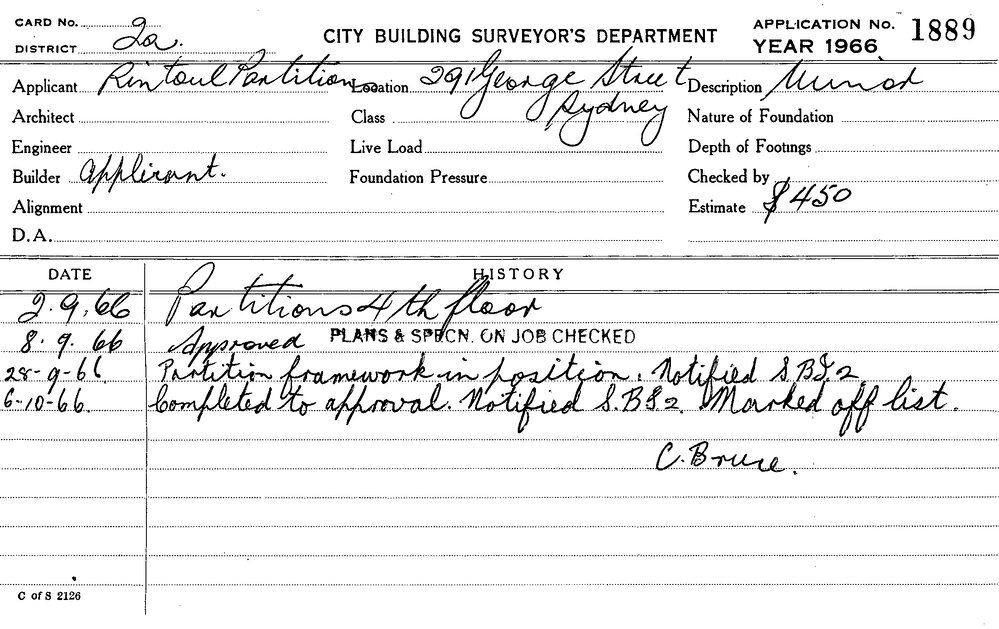 CARD No.
DISTRICT 2a.
CITY BUILDING SURVEYOR'S DEPARTMENT
APPLICATION No. 1889
YEAR 1966
Applicant Rintoul Partitions Location 291 George Street Sydney Description Minor
Architect Class Nature of Foundation
Engineer Live Load Depth of Footings
Builder Applicant. Foundation Pressure Checked by
Alignment Estimate $450
D.A.
DATE HISTORY
2.9.66 Partitions 4th floor
8.9.66 Approved PLANS & SPECN. ON JOB CHECKED
28-9-66 Partition framework in position. Notified S.B.S.2.
6-10-66. Completed to approval. Notified S.B.S.2. Marked off list.
C. Bruce.
C of S 2126